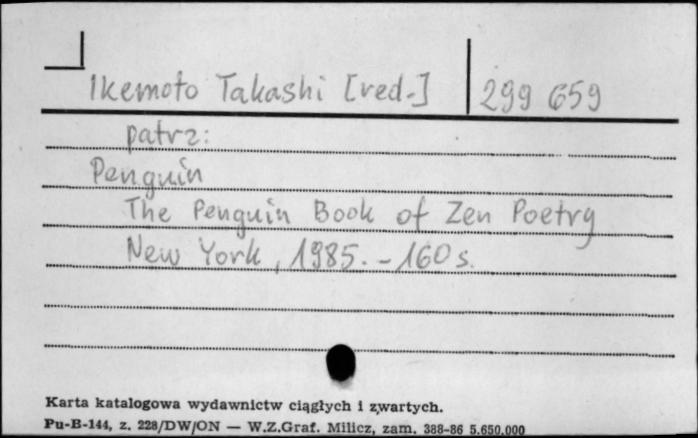 Ikemoto Takashi [red.] 299 659
patrz:
Penguin
The Penguin Book of Zen Poetry
New York, 1985. - 160 s.
Karta katalogowa wydawnictw ciągłych i zwartych.
Pu-B-144, z. 228/DW/ON — W.Z.Graf. Milicz, zam. 388-86 5.650.000